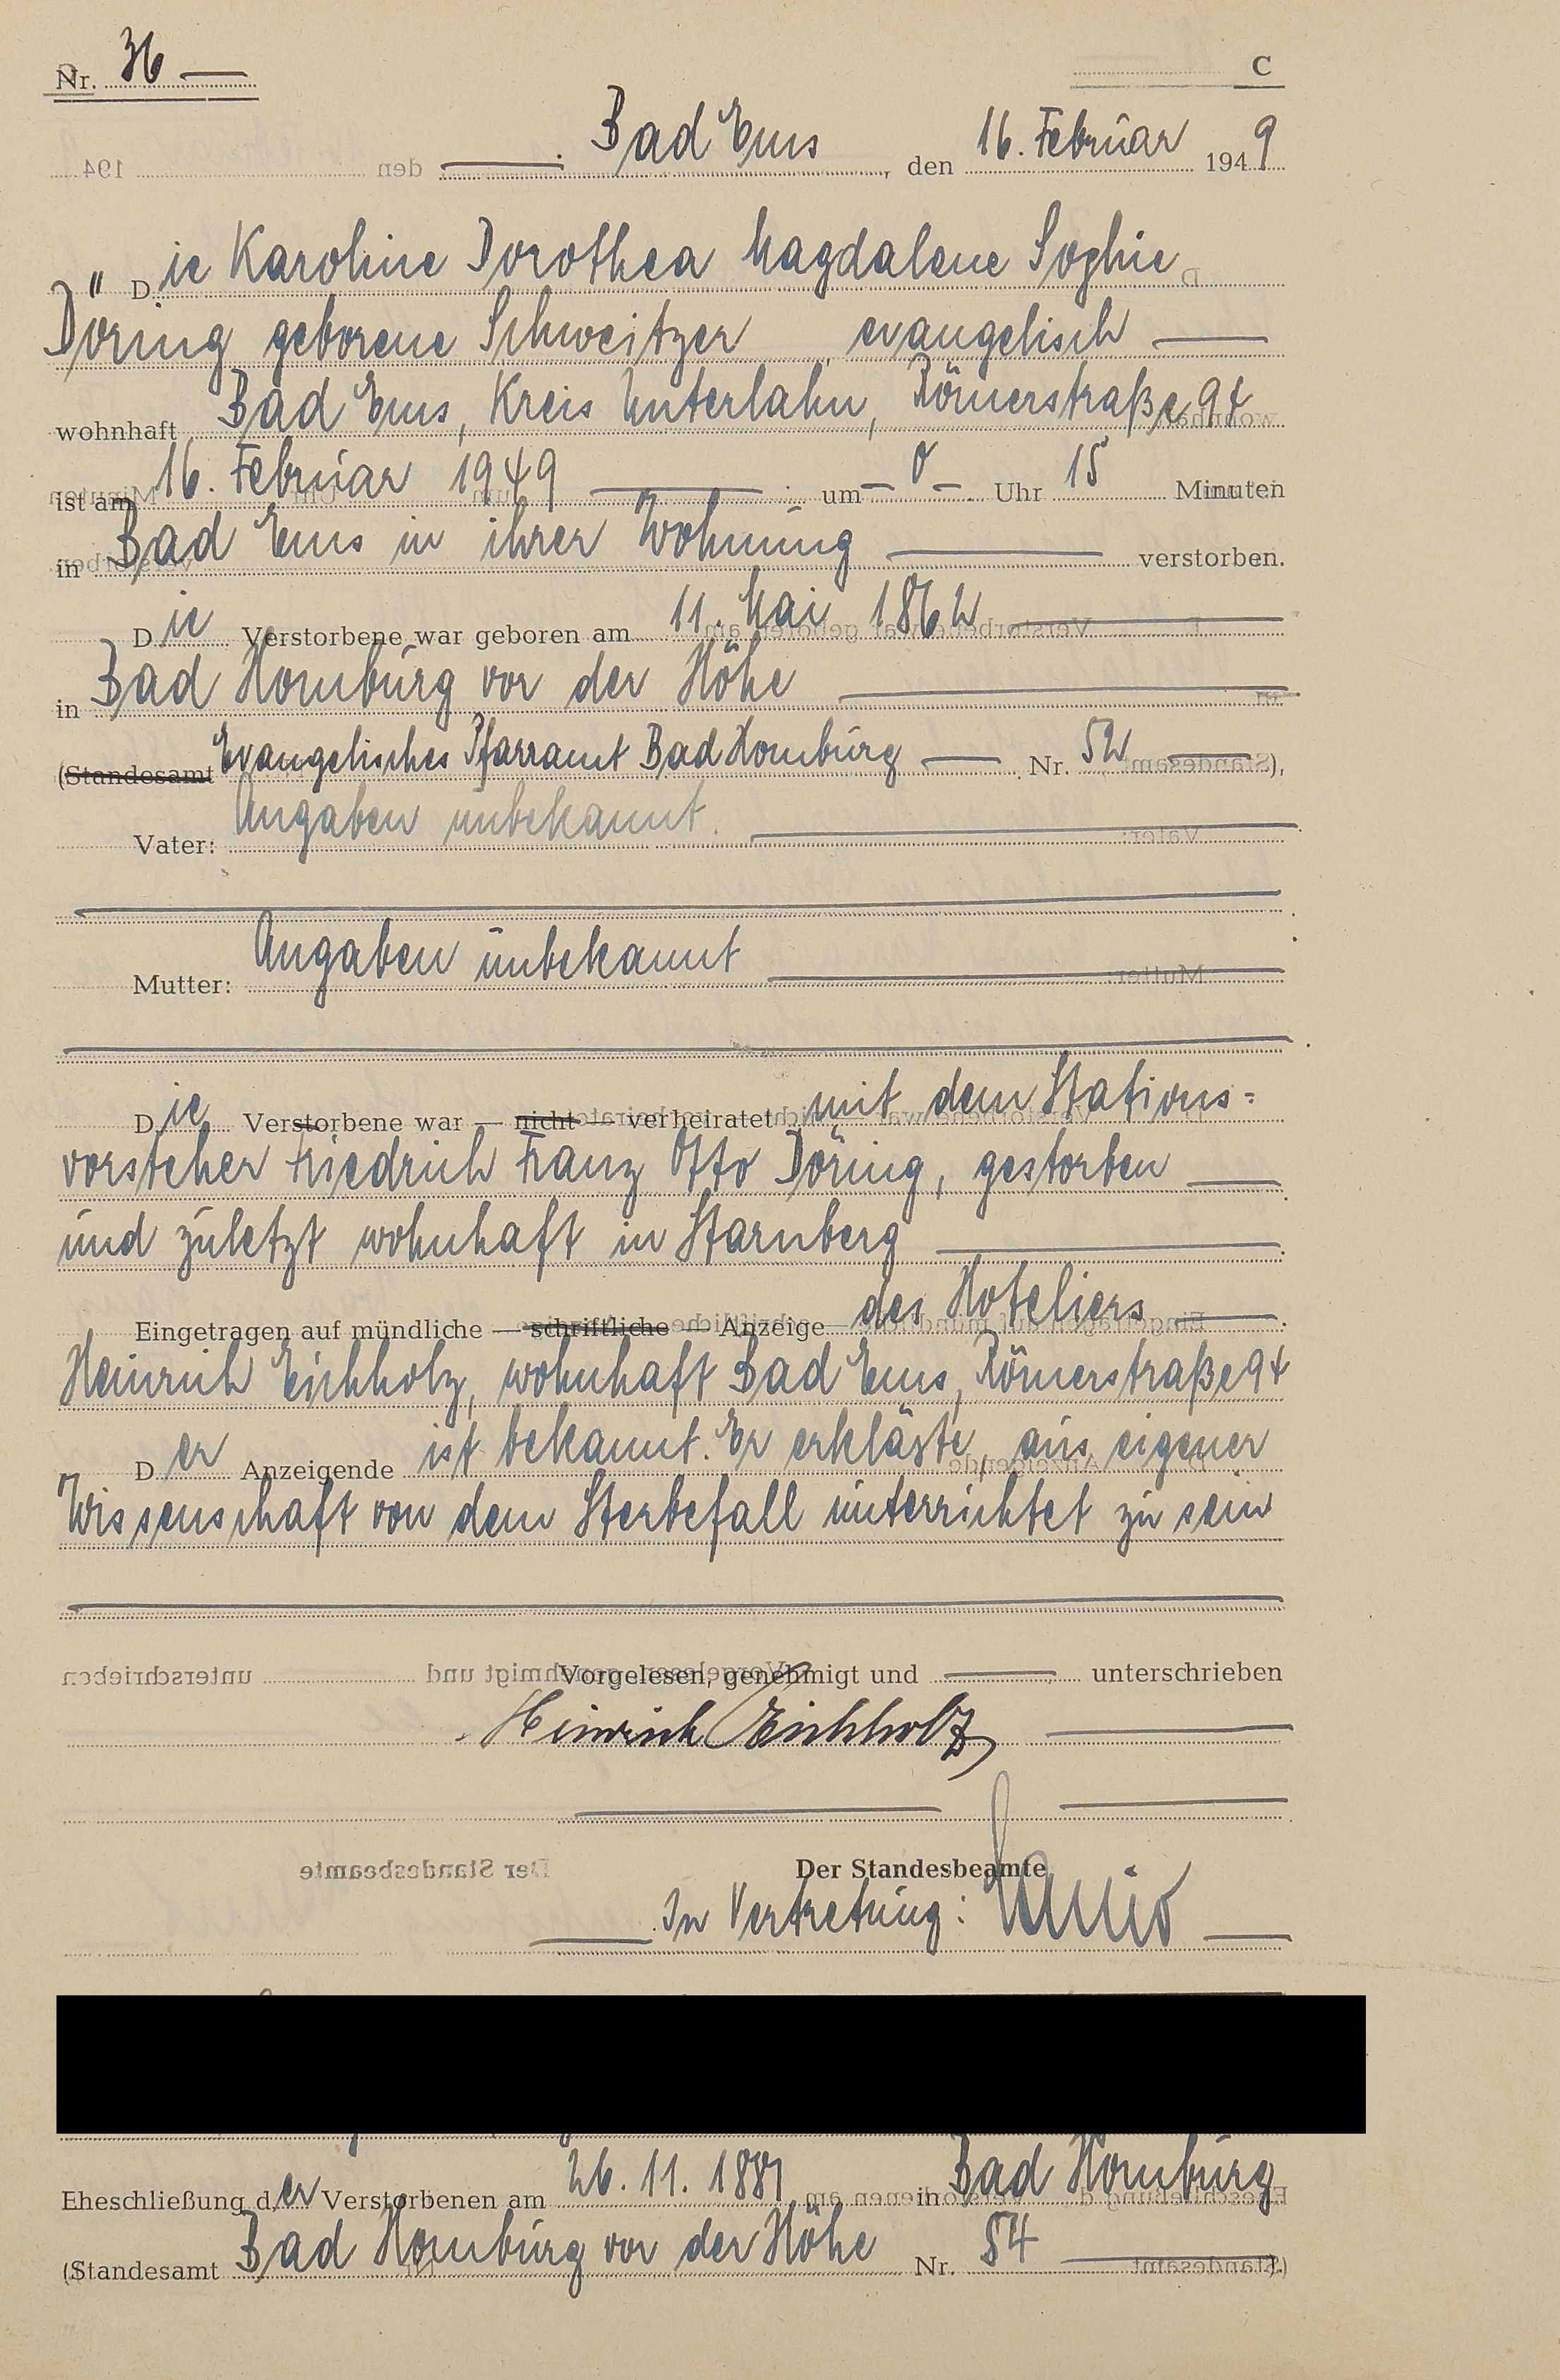 Nr. 36
C
Bad Ems, den 16. Februar 1949
Die Karoline Dorothea Magdalene Sophie
Döring geborene Schweitzer evangelisch
wohnhaft Bad Ems, Kreis Unterlahn, Römerstraße 94
ist am 16. Februar 1949 um 0 Uhr 15 Minuten
in Bad Ems in ihrer Wohnung verstorben.
Die Verstorbene war geboren am 11. Mai 1862
in Bad Homburg vor der Höhe
(Standesamt Evangelisches Pfarramt Bad Homburg Nr. 52),
Vater: Angaben unbekannt.
Mutter: Angaben unbekannt
Die Verstorbene war — nicht — verheiratet mit dem Stations=
vorsteher Friedrich Franz Otto Döring, gestorben
und zuletzt wohnhaft in Starnberg
Eingetragen auf mündliche — schriftliche — Anzeige des Hoteliers
Heinrich Eichholz, wohnhaft Bad Ems, Römerstraße 94
Der Anzeigende ist bekannt. Er erklärte, aus eigener
Wissenschaft von dem Sterbefall unterrichtet zu sein
Vorgelesen, genehmigt und unterschrieben
Heinrich Eichholz
Der Standesbeamte
In Vertretung:
Eheschließung der Verstorbenen am 26. 11. 1887 in Bad Homburg
(Standesamt Bad Homburg vor der Höhe Nr. 54).